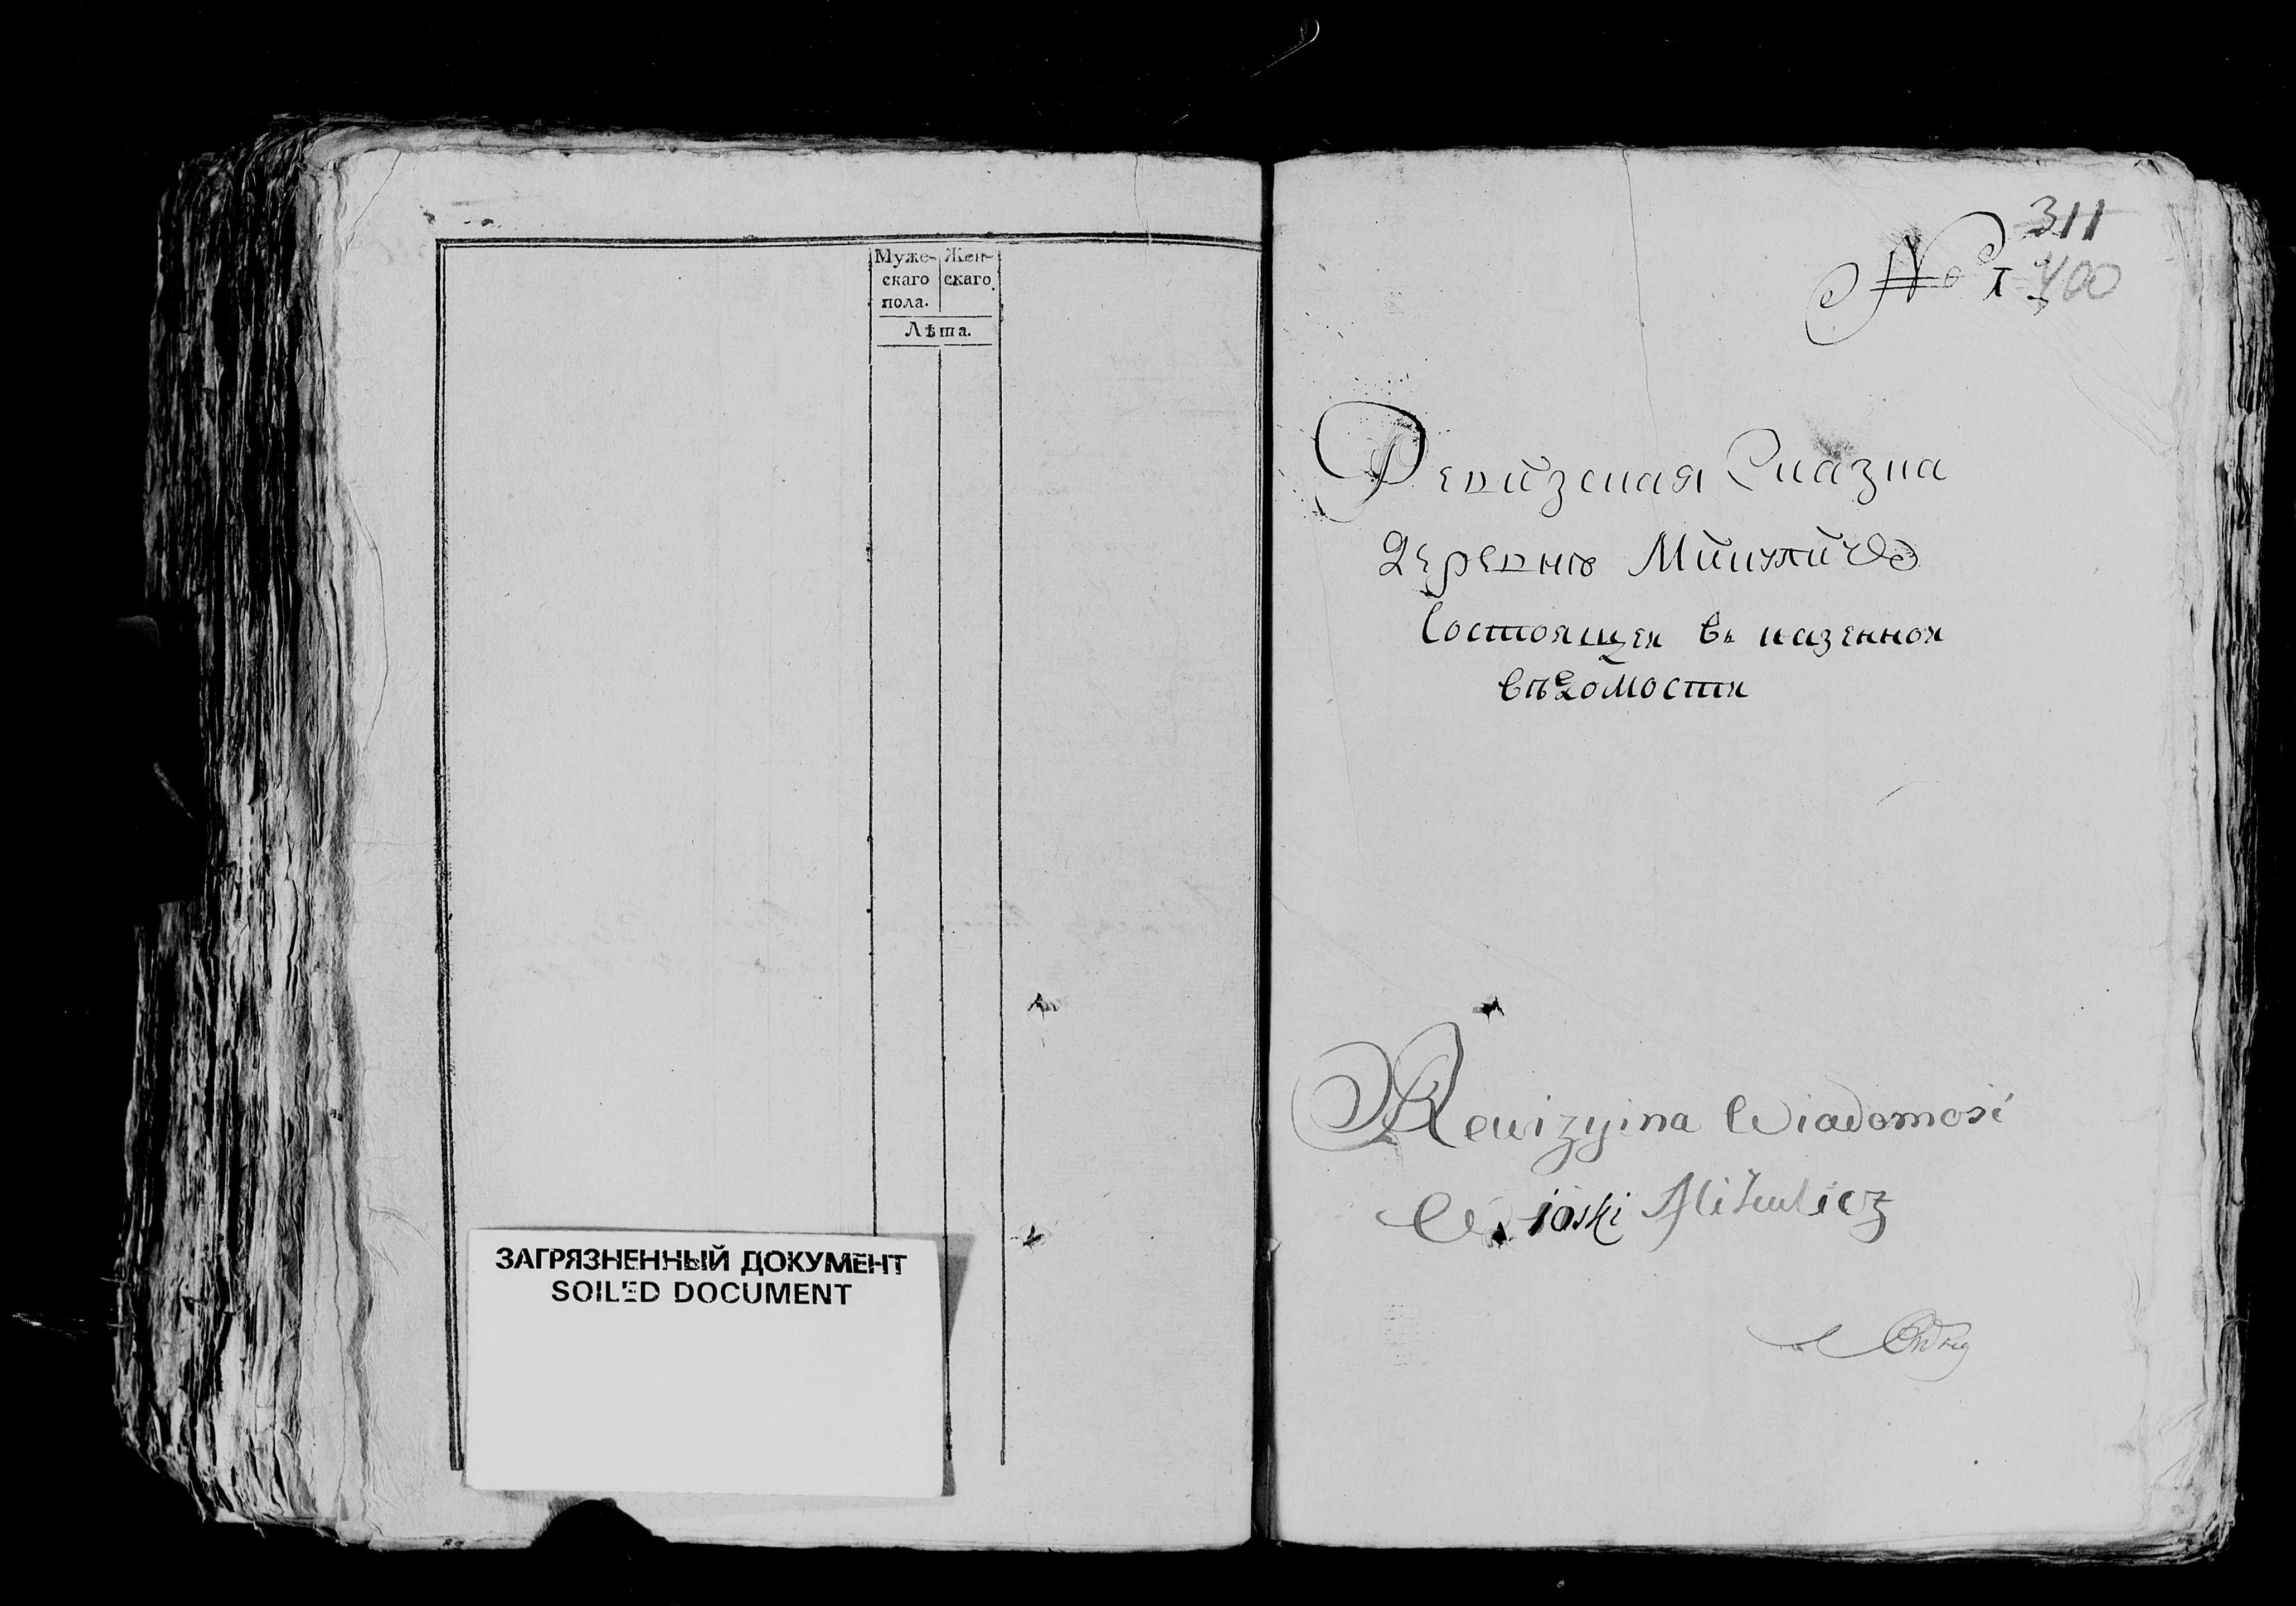 Муже- Жен-
скаго скаго
пола.
Лѣта.
ЗАГРЯЗНЕННЫЙ ДОКУМЕНТ
SOILED DOCUMENT
311
400
№ 7
Ревизская Сказка
деревнѣ Микуличъ
Состоящея въ казенной
вѣдомости
Rewizyina Wiadomość
Wioski Mikulicz